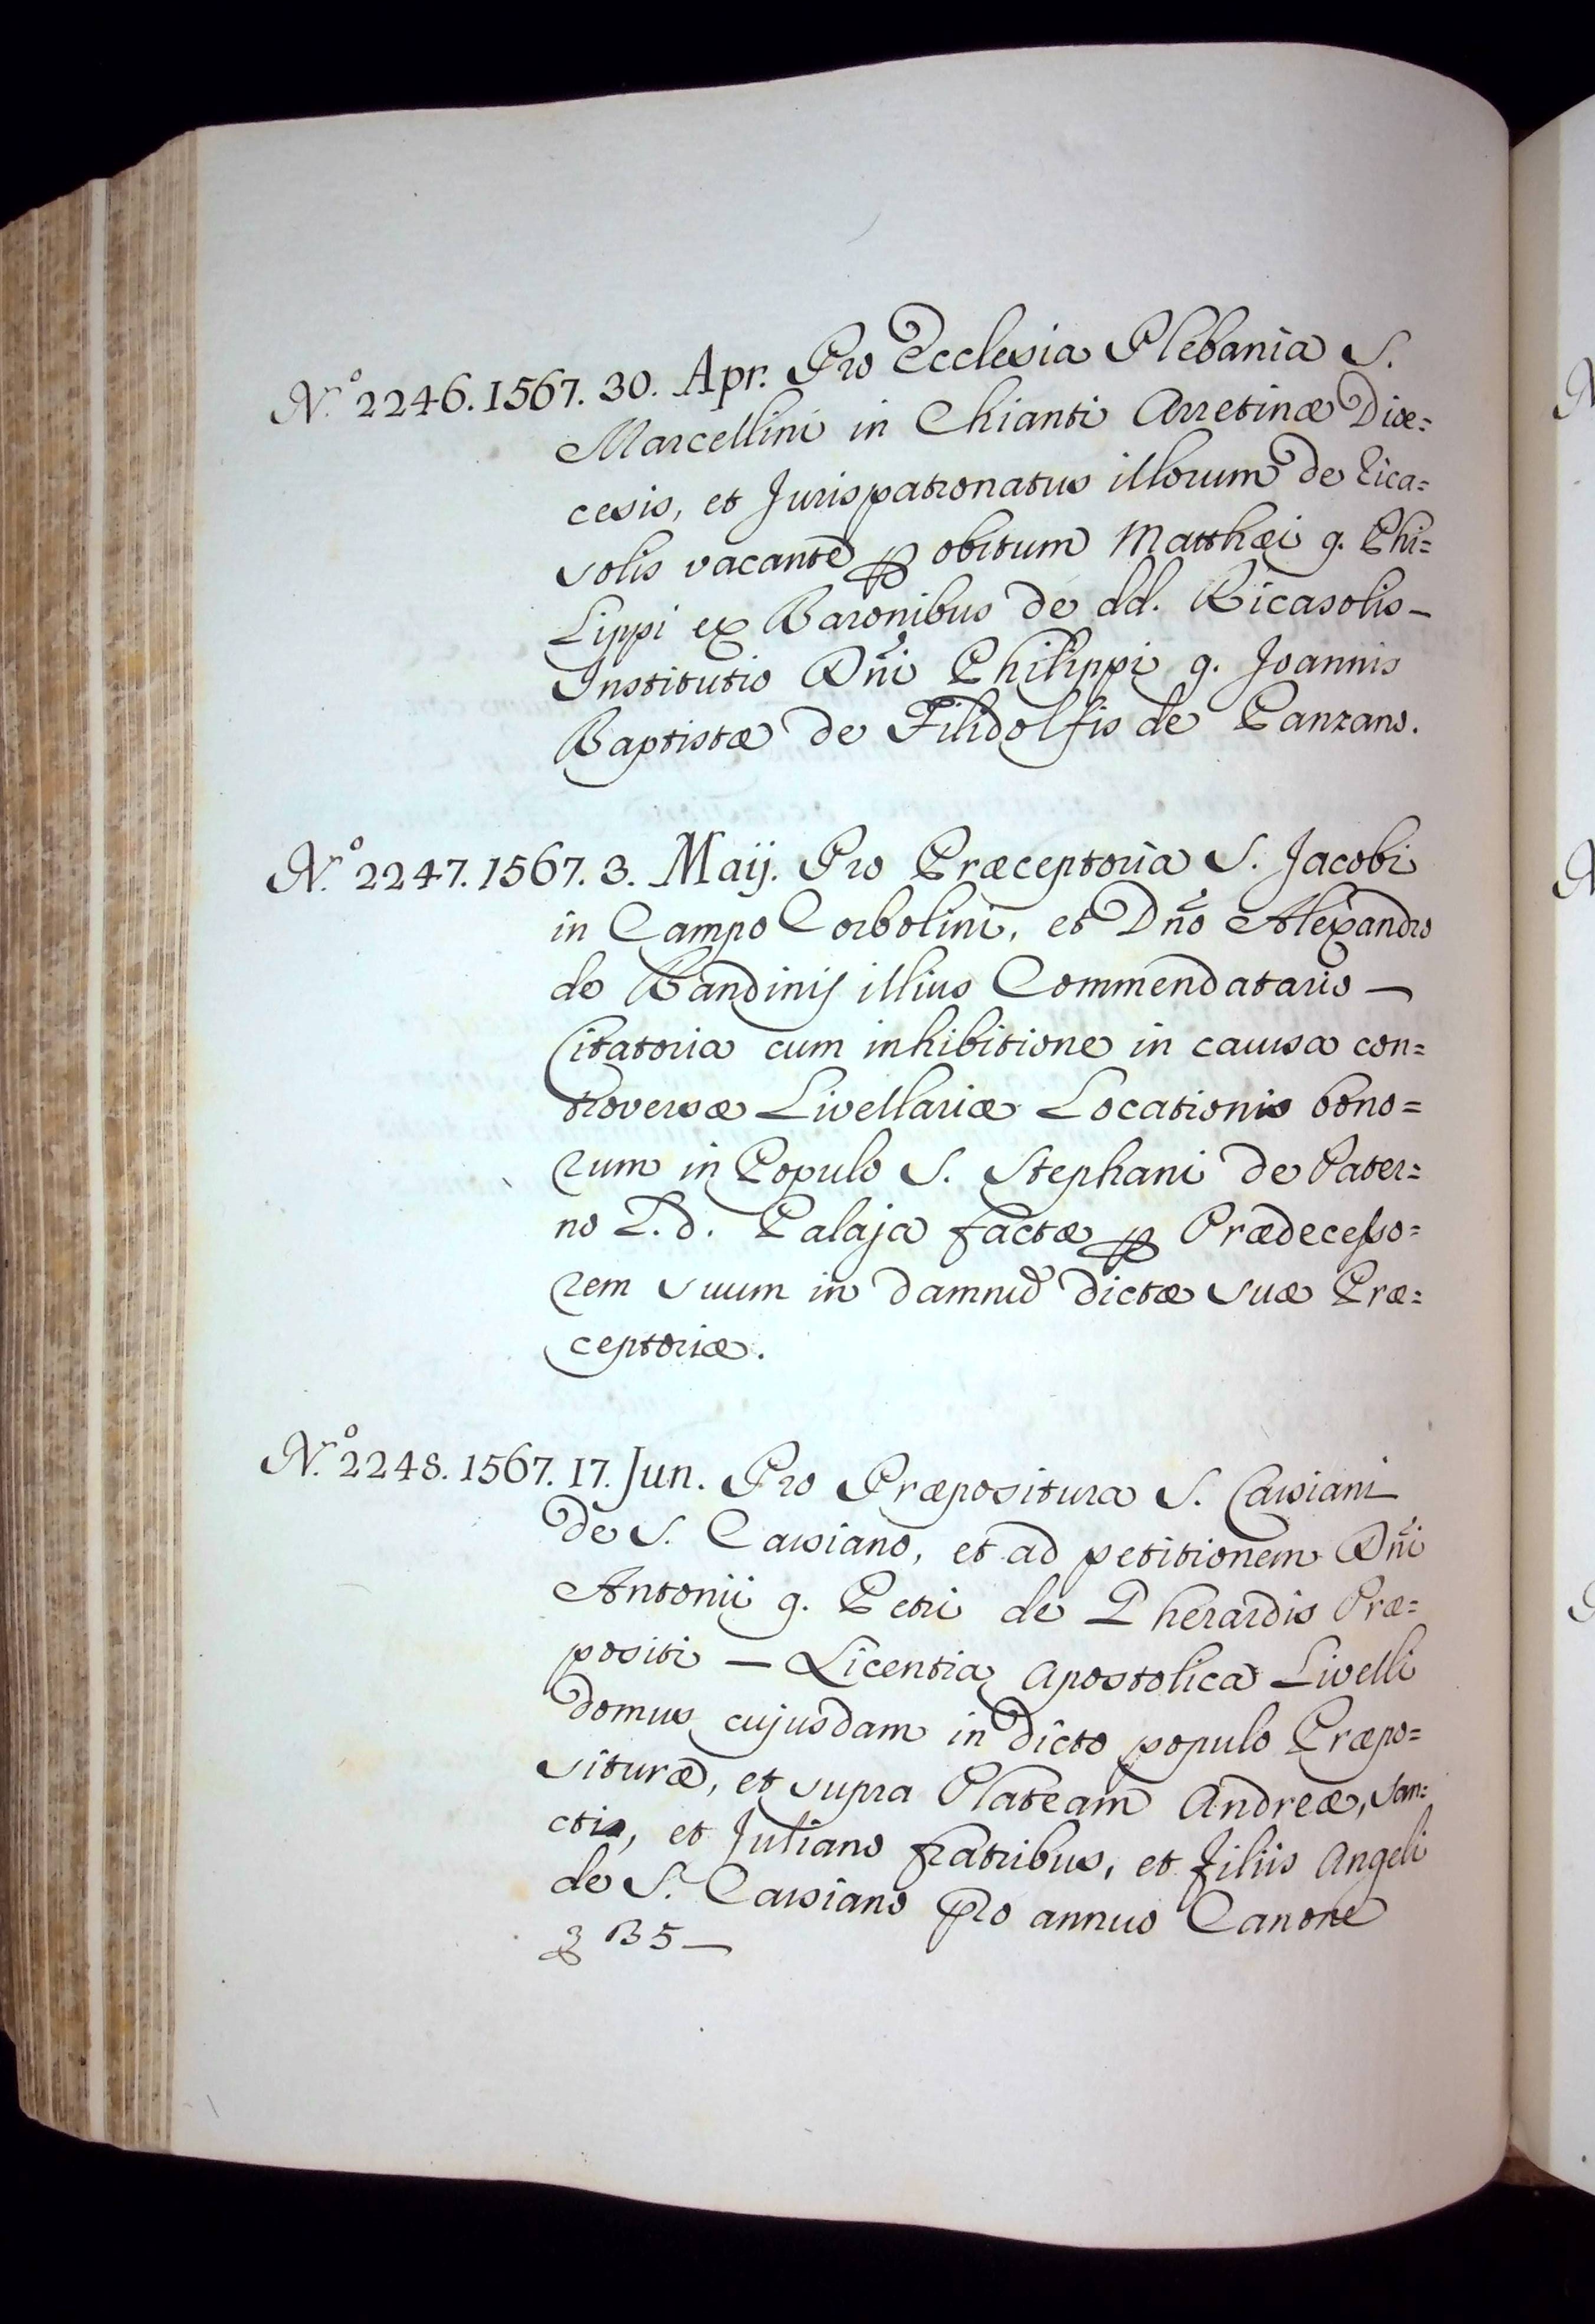 N.º 2246. 1567. 30. Apr. Pro Ecclesia Plebania S.
Marcellini in Chianti Arretinæ Diœ=
cesis, et Jurispatronatus illorum de Rica=
solis vacante ꝑ obitum Matthæi q. Phi=
Lippi ex Baronibus de dd. Ricasolis —
Institutio Dñi Philippi q. Joannis
Baptistæ de Filidolfis de Panzano.
N.º 2247. 1567. 3. Maij. Pro Præceptoria S. Jacobi
in Campo Corbolini, et Dño Alexandro
de Bandinis illius Commendatario —
Citatoria cum inhibitione in causa con=
troversæ Livellariæ Locationis bono=
rum in Populo S. Stephani de Pater=
no L.d. Palaja factæ ꝑ Prædecesso=
rem suum in damnũ dictæ suæ Præ=
ceptoriæ.
N.º 2248. 1567. 17. Jun. Pro Præpositura S. Cassiani
de S. Cassiano, et ad petitionem Dñi
Antonii q. Petri de Gherardis Præ=
positi — Licentia Apostolica Livelli
domus cujusdam in dicto populo Præpo=
situræ, et supra Plateam Andreæ, San=
ctis, et Juliano fratribus, et filiis Angeli
de S. Cassiano pro annuo Canone
135 —